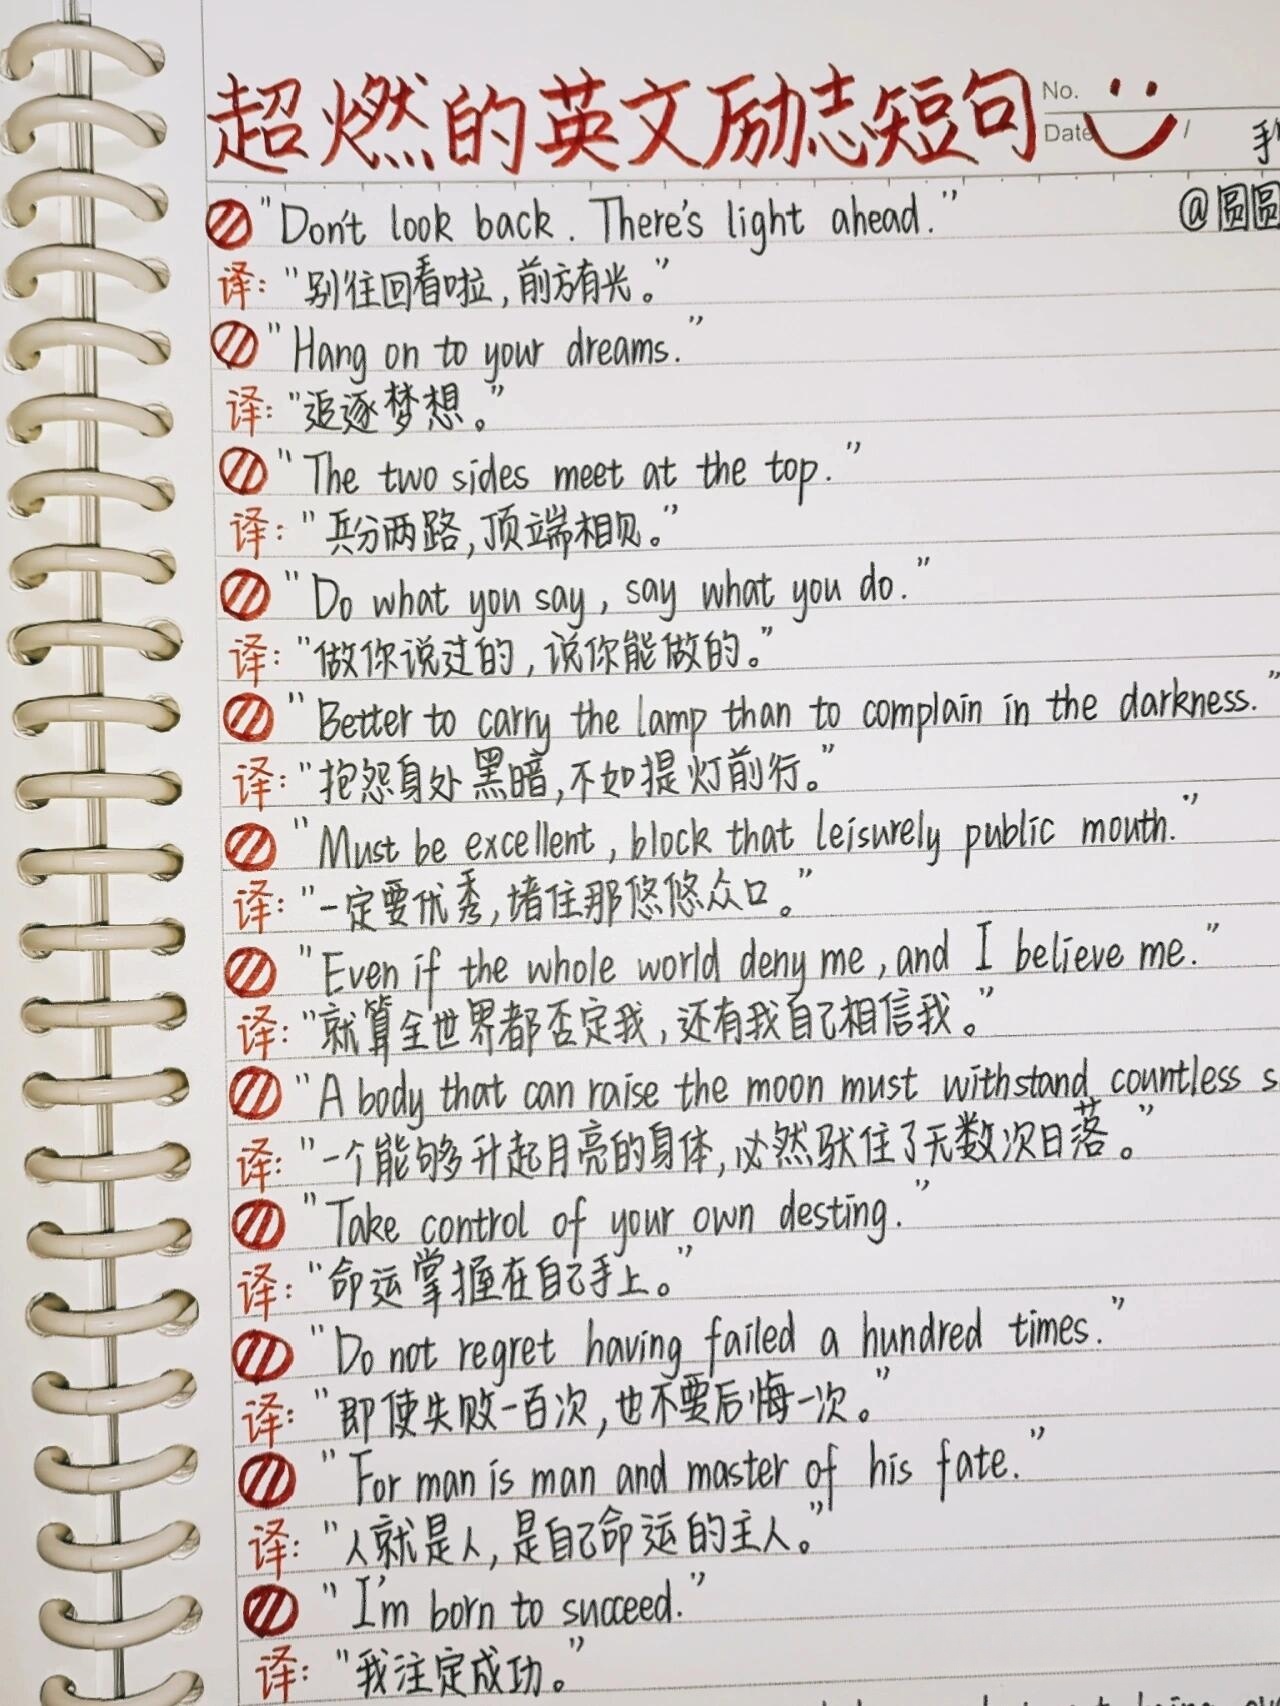 超燃的英文励志短句
No.
Date /
@圆圆
"Don't look back. There's light ahead."
译："别往回看啦，前方有光。"
"Hang on to your dreams."
译："追逐梦想。"
"The two sides meet at the top."
译："兵分两路，顶端相见。"
"Do what you say, say what you do."
译："做你说过的，说你能做的。"
"Better to carry the lamp than to complain in the darkness."
译："抱怨身处黑暗，不如提灯前行。"
"Must be excellent, block that leisurely public mouth."
译："一定要优秀，堵住那悠悠众口。"
"Even if the whole world deny me, and I believe me."
译："就算全世界都否定我，还有我自己相信我。"
"A body that can raise the moon must withstand countless
译："一个能够升起月亮的身体，必然驮住了无数次日落。"
"Take control of your own desting."
译："命运掌握在自己手上。"
"Do not regret having failed a hundred times."
译："即使失败一百次，也不要后悔一次。"
"For man is man and master of his fate."
译："人就是人，是自己命运的主人。"
"I'm born to succeed."
译："我注定成功。"